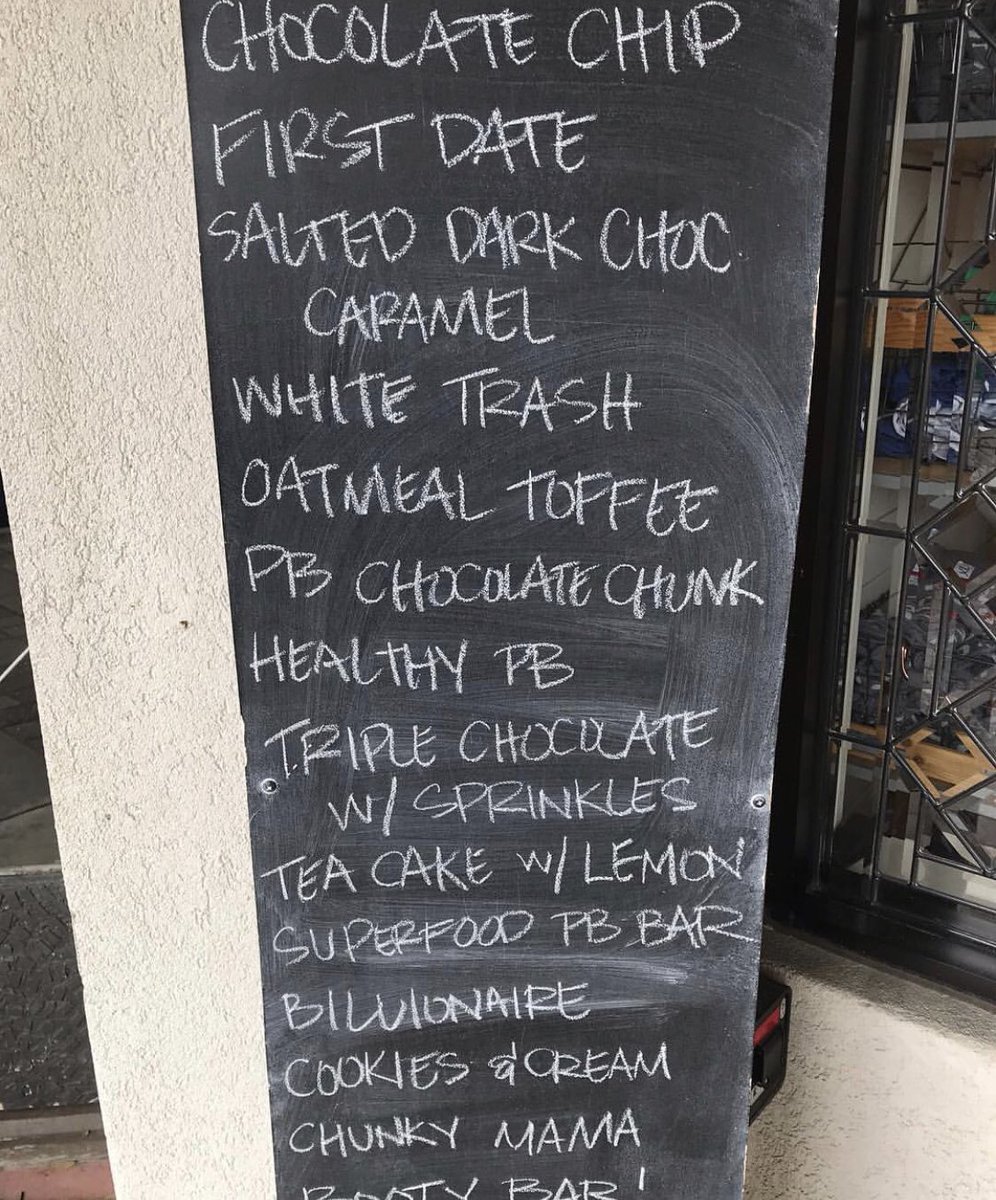 CHOCOLATE CHIP
FIRST DATE
SALTED DARK CHOC
CARAMEL
WHITE TRASH
OATMEAL TOFFEE
PB CHOCOLATE CHUNK
HEALTHY PB
TRIPLE CHOCOLATE
W/ SPRINKLES
TEA CAKE W/ LEMON
SUPERFOOD PB BAR
BILLIONAIRE
COOKIES & CREAM
CHUNKY MAMA
BOOTY BAR!